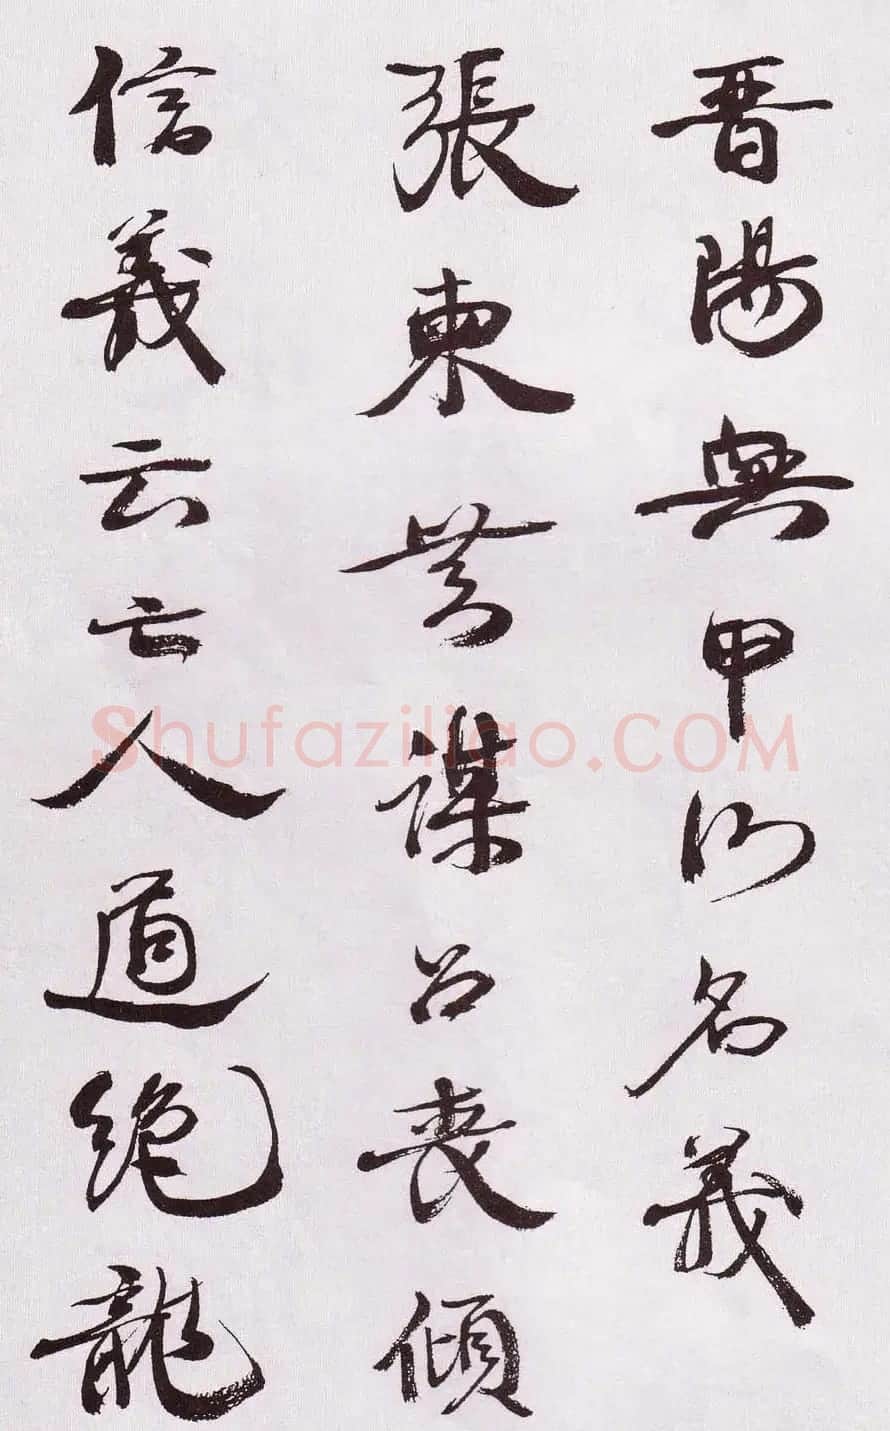 晉陽興甲以名義
張東莽謀呂喪傾
信義云亡人道絕龍
Shufaziliao.COM